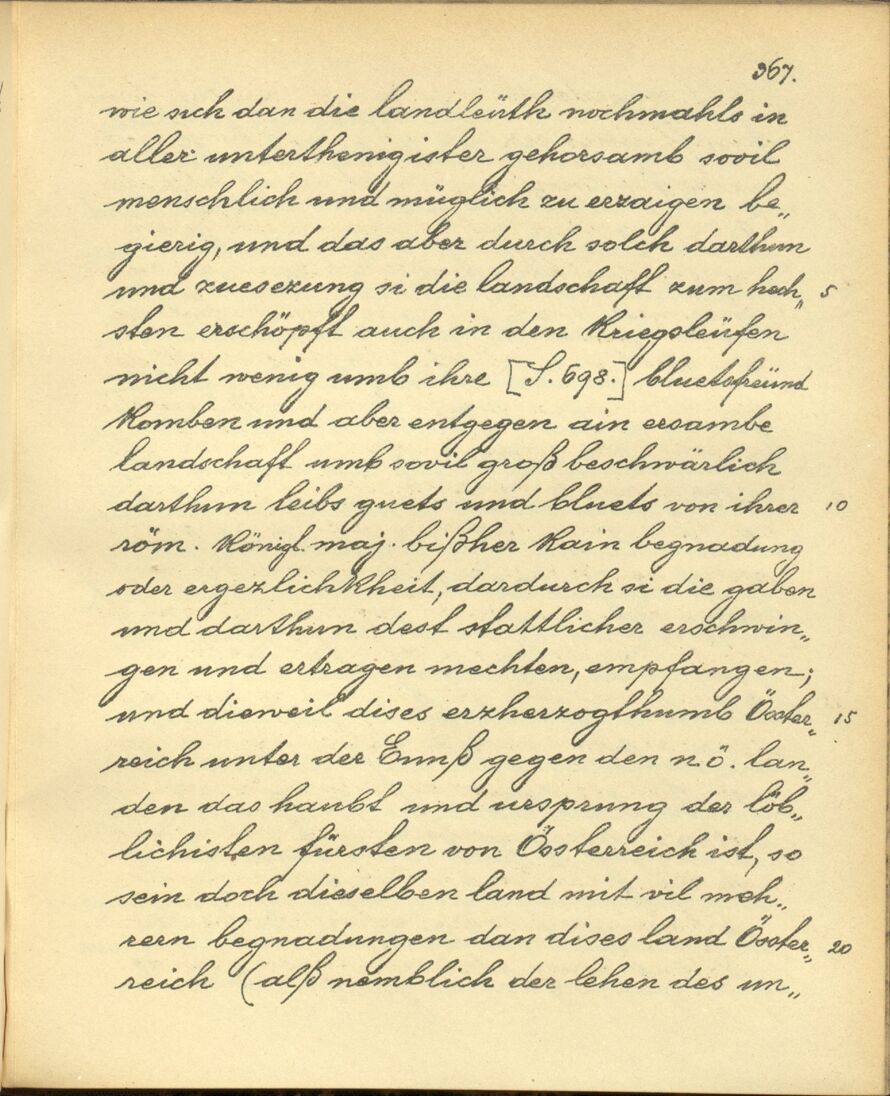 367.
wie sich dan die landleüth nochmahls in
aller unterthenigister gehorsamb sovil
menschlich und müglich zu erzaigen be„
gierig, und das aber durch solch darthun
und zuesezung si die landschaft zum hech„ 5
sten erschöpft auch in den Kriegsleüfen
nicht wenig umb ihre [S. 698.] bluetsfreünd
Komben und aber entgegen ain ersambe
landschaft umb sovil groß beschwärlich
darthun leibs guets und bluets von ihrer 10
röm. Königl. maj. bißher Kain begnadung
oder ergezlichKheit, dardurch si die gaben
und darthun dest stattlicher erschwin„
gen und ertragen mechten, empfangen;
und dieweil dises erzherzogthumb Öster„ 15
reich unter der Ennß gegen den n.ö. lan„
den das haubt und ursprung der löb„
lichisten fürsten von Össterreich ist, so
sein doch dieselben land mit vil meh„
rern begnadungen dan dises land Össter„ 20
reich (alß nemblich der lehen des un„